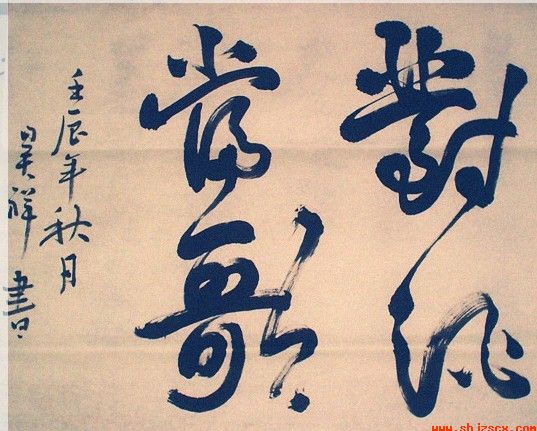 對酒
當歌
壬辰年秋月
昊祥書
www.shjzscx.com